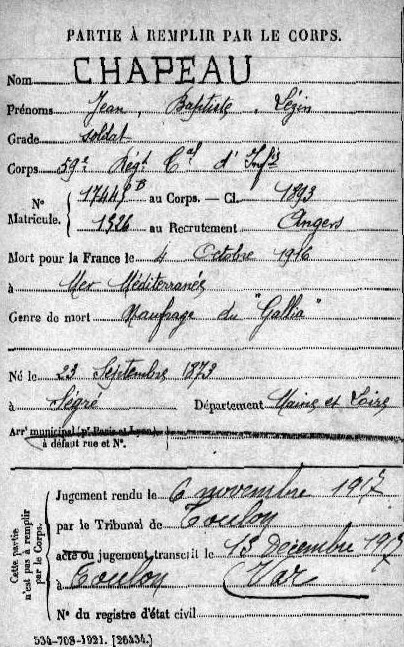 PARTIE À REMPLIR PAR LE CORPS.
Nom CHAPEAU
Prénoms Jean, Baptiste, Lézin
Grade soldat
Corps 59e Régt Cal d'Infie
N° Matricule. 17449 B au Corps. — Cl. 1893
1326 au Recrutement Angers
Mort pour la France le 4 Octobre 1916
à Mer Méditerranée
Genre de mort Naufrage du "Gallia"
Né le 23 Septembre 1873
à Ségré Département Maine et Loire
Arrt municipal (pr Paris et Lyon)
à défaut rue et N°.
Cette partie n'est pas à remplir par le Corps.
Jugement rendu le 6 novembre 1917
par le Tribunal de Toulon
acte ou jugement transcrit le 13 Décembre 1917
à Toulon (Var)
N° du registre d'état civil
534-708-1921. [26434.]